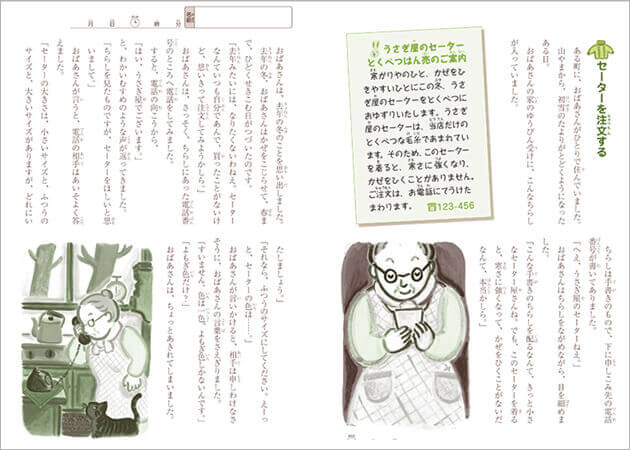 セーターを注文する
ある町に、おばあさんがひとりで住んでいました。
山やまから、初雪のたよりがとどくようになった
ある日。
おばあさんの家のゆうびん受けに、こんなちらし
が入っていました。
うさぎ屋のセーター
とくべつはん売のご案内
寒がりやのひと、かぜをひ
きやすいひとにこの冬、うさ
ぎ屋のセーターをとくべつに
おゆずりいたします。うさぎ
屋のセーターは、当店だけの
とくべつな毛糸であまれてい
ます。そのため、このセーター
を着ると、寒さに強くなり、
かぜをひくことがありません。
ご注文は、お電話にてうけた
まわります。
☎123-456
ちらしは手書きのもので、下に申しこみ先の電話
番号が書いてありました。
「へえ、うさぎ屋のセーターねえ。」
おばあさんはちらしをながめながら、目を細めま
した。
「こんな手書きのちらしを配るなんて、きっと小さ
なセーター屋さんね。でも、このセーターを着る
と、寒さに強くなって、かぜをひくことがないだ
なんて、本当かしら。」
月 日 時 分
名前
おばあさんは、去年の冬のことを思い出しました。
去年の冬、おばあさんはかぜをこじらせて、春ま
で、ひどくせきこむ日がつづいたのです。
「去年みたいには、なりたくないわねえ。セーター
なんていつも自分であんで、買ったことがないけ
ど、思いきって注文してみようかしら。」
おばあさんは、さっそく、ちらしにあった電話番
号のところへ電話をしてみました。
すると、電話の向こうから、
「はい、うさぎ屋でございます。」
と、わかいむすめのような声が返ってきました。
「ちらしを見たものですが、セーターをほしいと思
いまして。」
おばあさんが言うと、電話の相手はあいそよく答
えました。
「セーターの大きさは、小さいサイズと、ふつうの
サイズと、大きいサイズがありますが、どれにい
たしましょう。」
「それなら、ふつうのサイズにしてください。えーっ
と、セーターの色は……。」
おばあさんが言いかけると、相手は申しわけなさ
そうに、おばあさんの言葉をさえぎりました。
「すいません。色は一色、よもぎ色しかないんです。」
「よもぎ色だけ？」
おばあさんは、ちょっとあきれてしまいました。